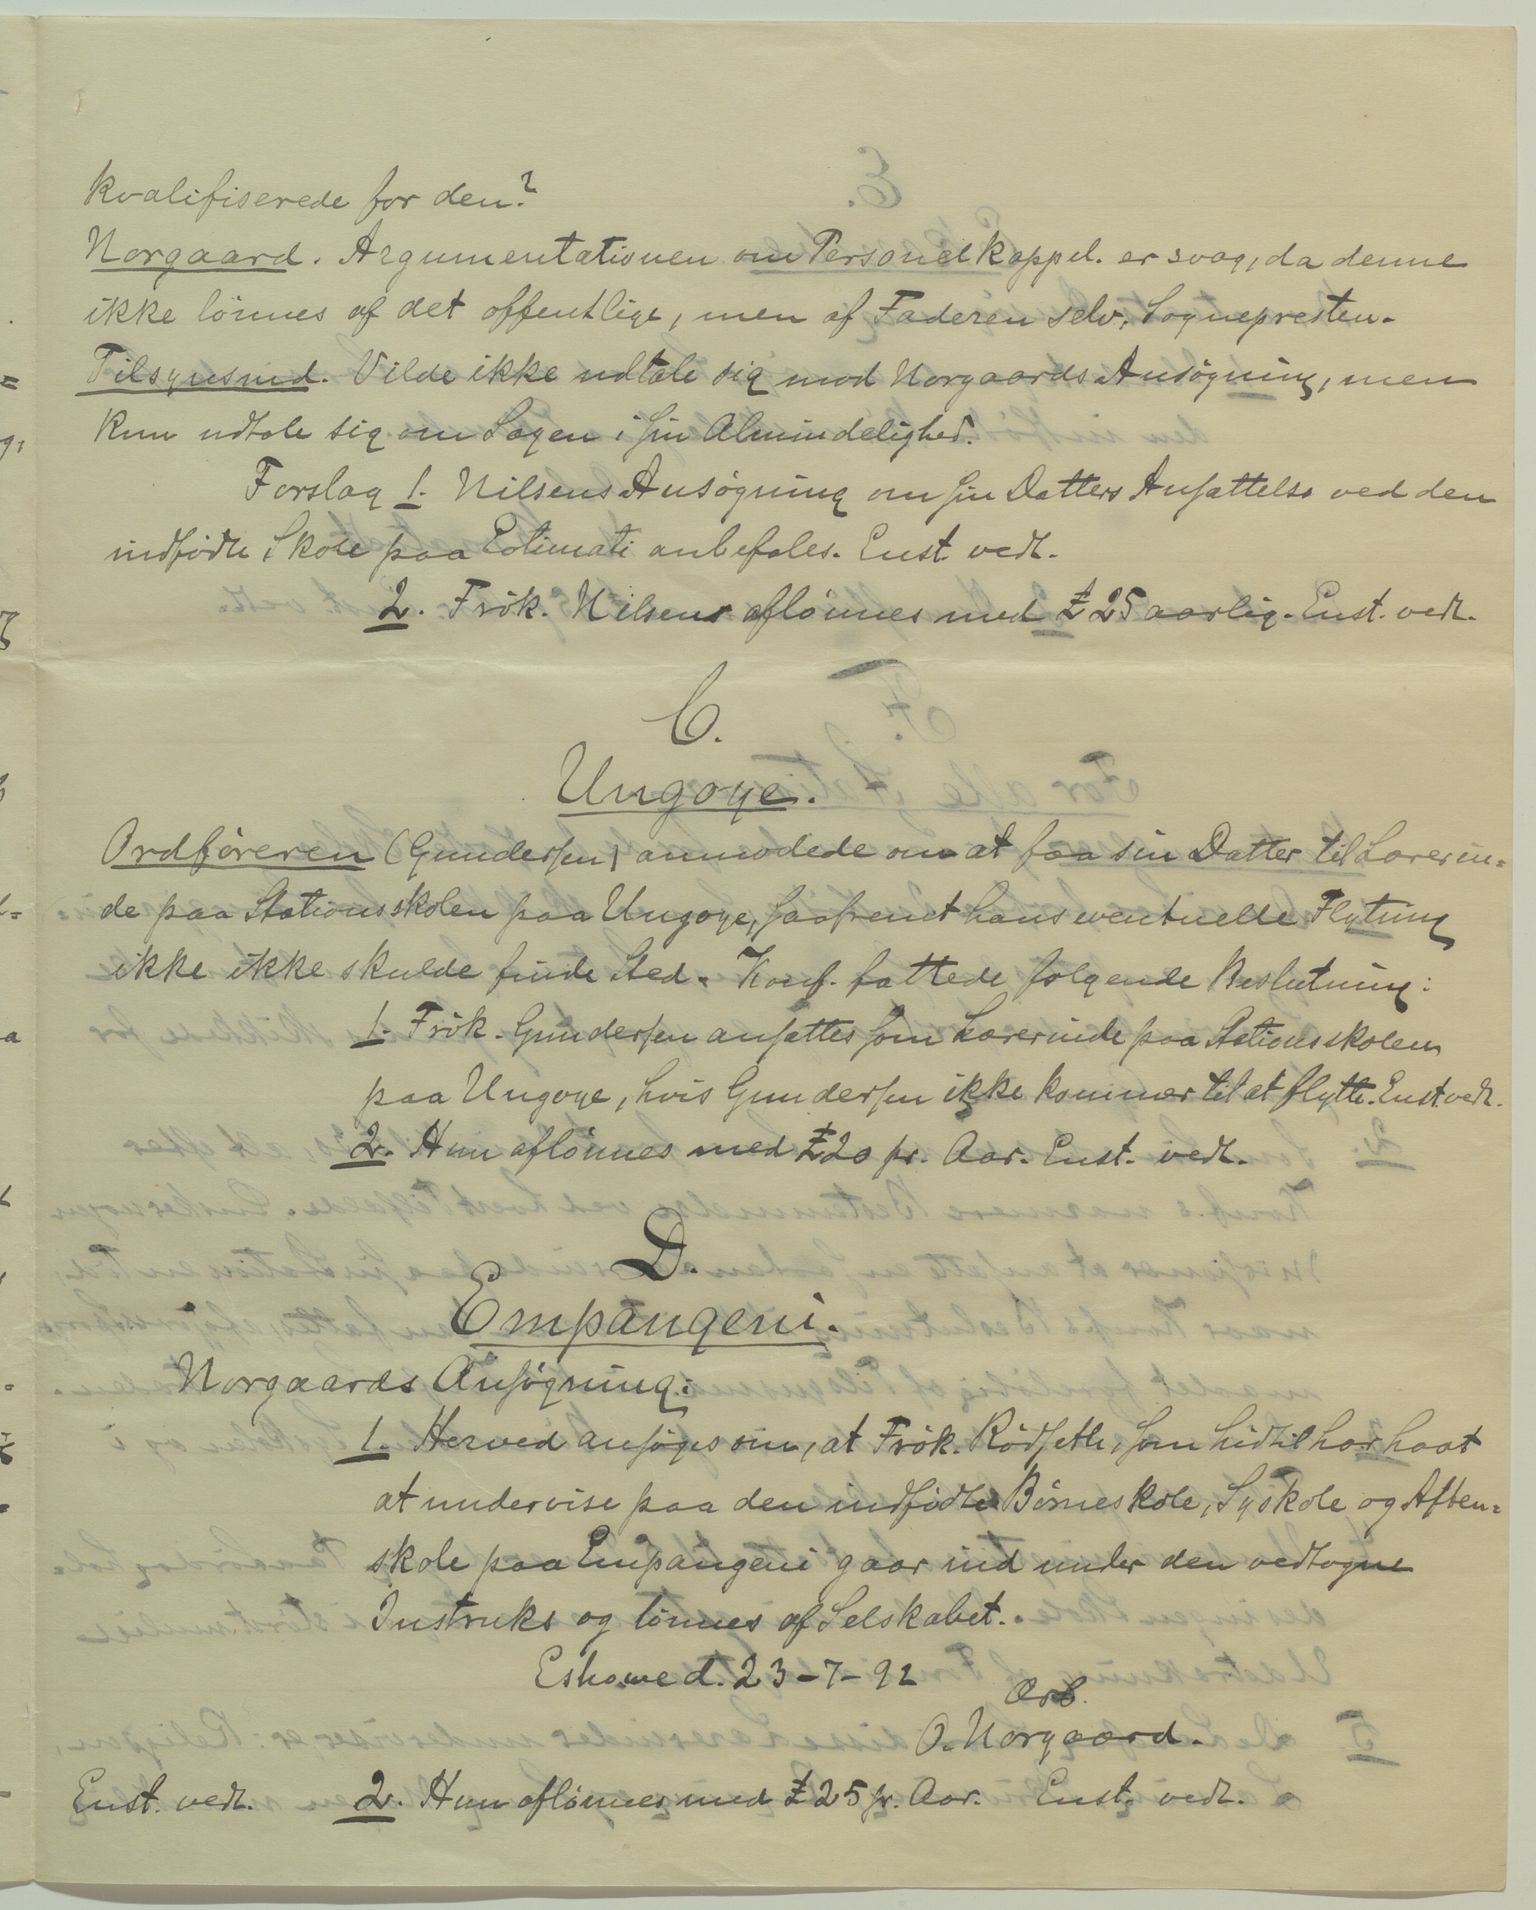 kvalifiserede for den?
Norgaard. Argumentationen om Personelkappel. er svag, da denne
ikke lønnes af det offentlige, men af Faderen selv, Sognepresten.
Tilsynsmd. Vilde ikke udtale sig mod Norgaards Ansøgning, men
kun udtale sig om Sagen i sin Almindelighed.
Forslag 1. Nilsens Ansøgning om sin Datters Ansættelse ved den
indfødte Skole paa Eotimati anbefales. Enst. vedt.
2. Frøk. Nilsens aflønnes med £25 aarlig. Enst. vedt.
C.
Ungoye.
Ordføreren (Gundersen) anmodede om at faa sin Datter til Lærerin=
de paa Stationsskolen paa Ungoye, saafremt hans eventuelle Flytning
ikke ikke skulde finde Sted. Konf. fattede følgende Beslutning:
1. Frøk. Gundersen ansættes som Lærerinde paa Stationsskolen
paa Ungoye, hvis Gundersen ikke kommer til at flytte. Enst. vedt.
2. Hun aflønnes med £20 pr. Aar. Enst. vedt.
D.
Empangeni.
Norgaards Ansøgning:
1. Herved ansøges om, at Frøk. Rødseth, som hidtil har havt
at undervise paa den indfødte Børneskole, Syskole og Aften=
skole paa Empangeni gaar ind under den vedtagne
Instruks og lønnes af Selskabet.
Eshowe d. 23-7-92
Ærb.
O. Norgaard.
Enst. vedt. 2. Hun aflønnes med £25 pr. Aar. Enst. vedt.